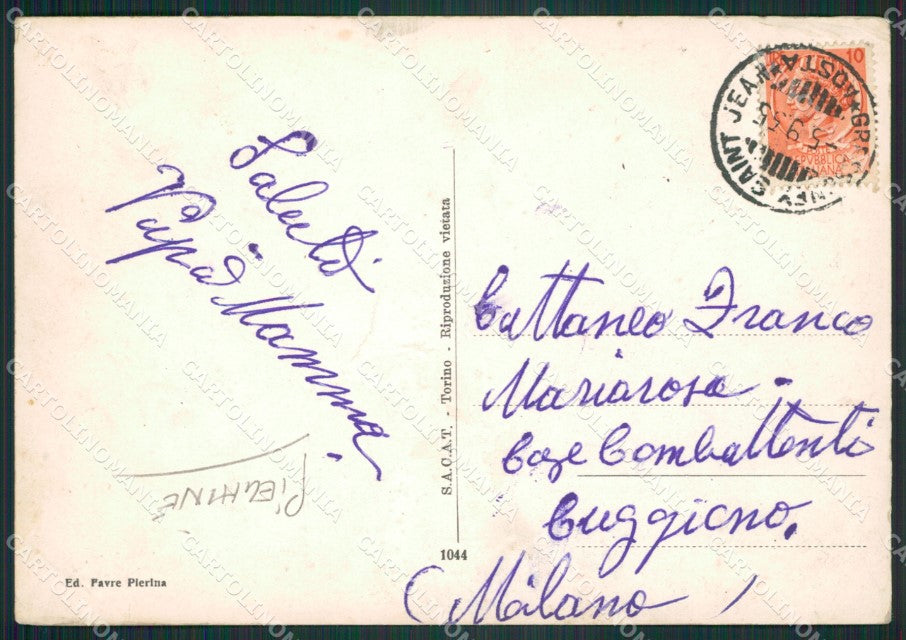 Saluti
Papà Mamma
PIEUHINÉ
Ed. Favre Pierina
S.A.C.A.T. - Torino - Riproduzione vietata
1044
10
REPVBBLICA
ITALIANA
GRESSONEY SAINT JEAN * AOSTA *
5.9.55
Cattaneo Franco
Mariarosa -
Case Combattenti
Cuggiono,
(Milano)
CARTOLINOMANIA